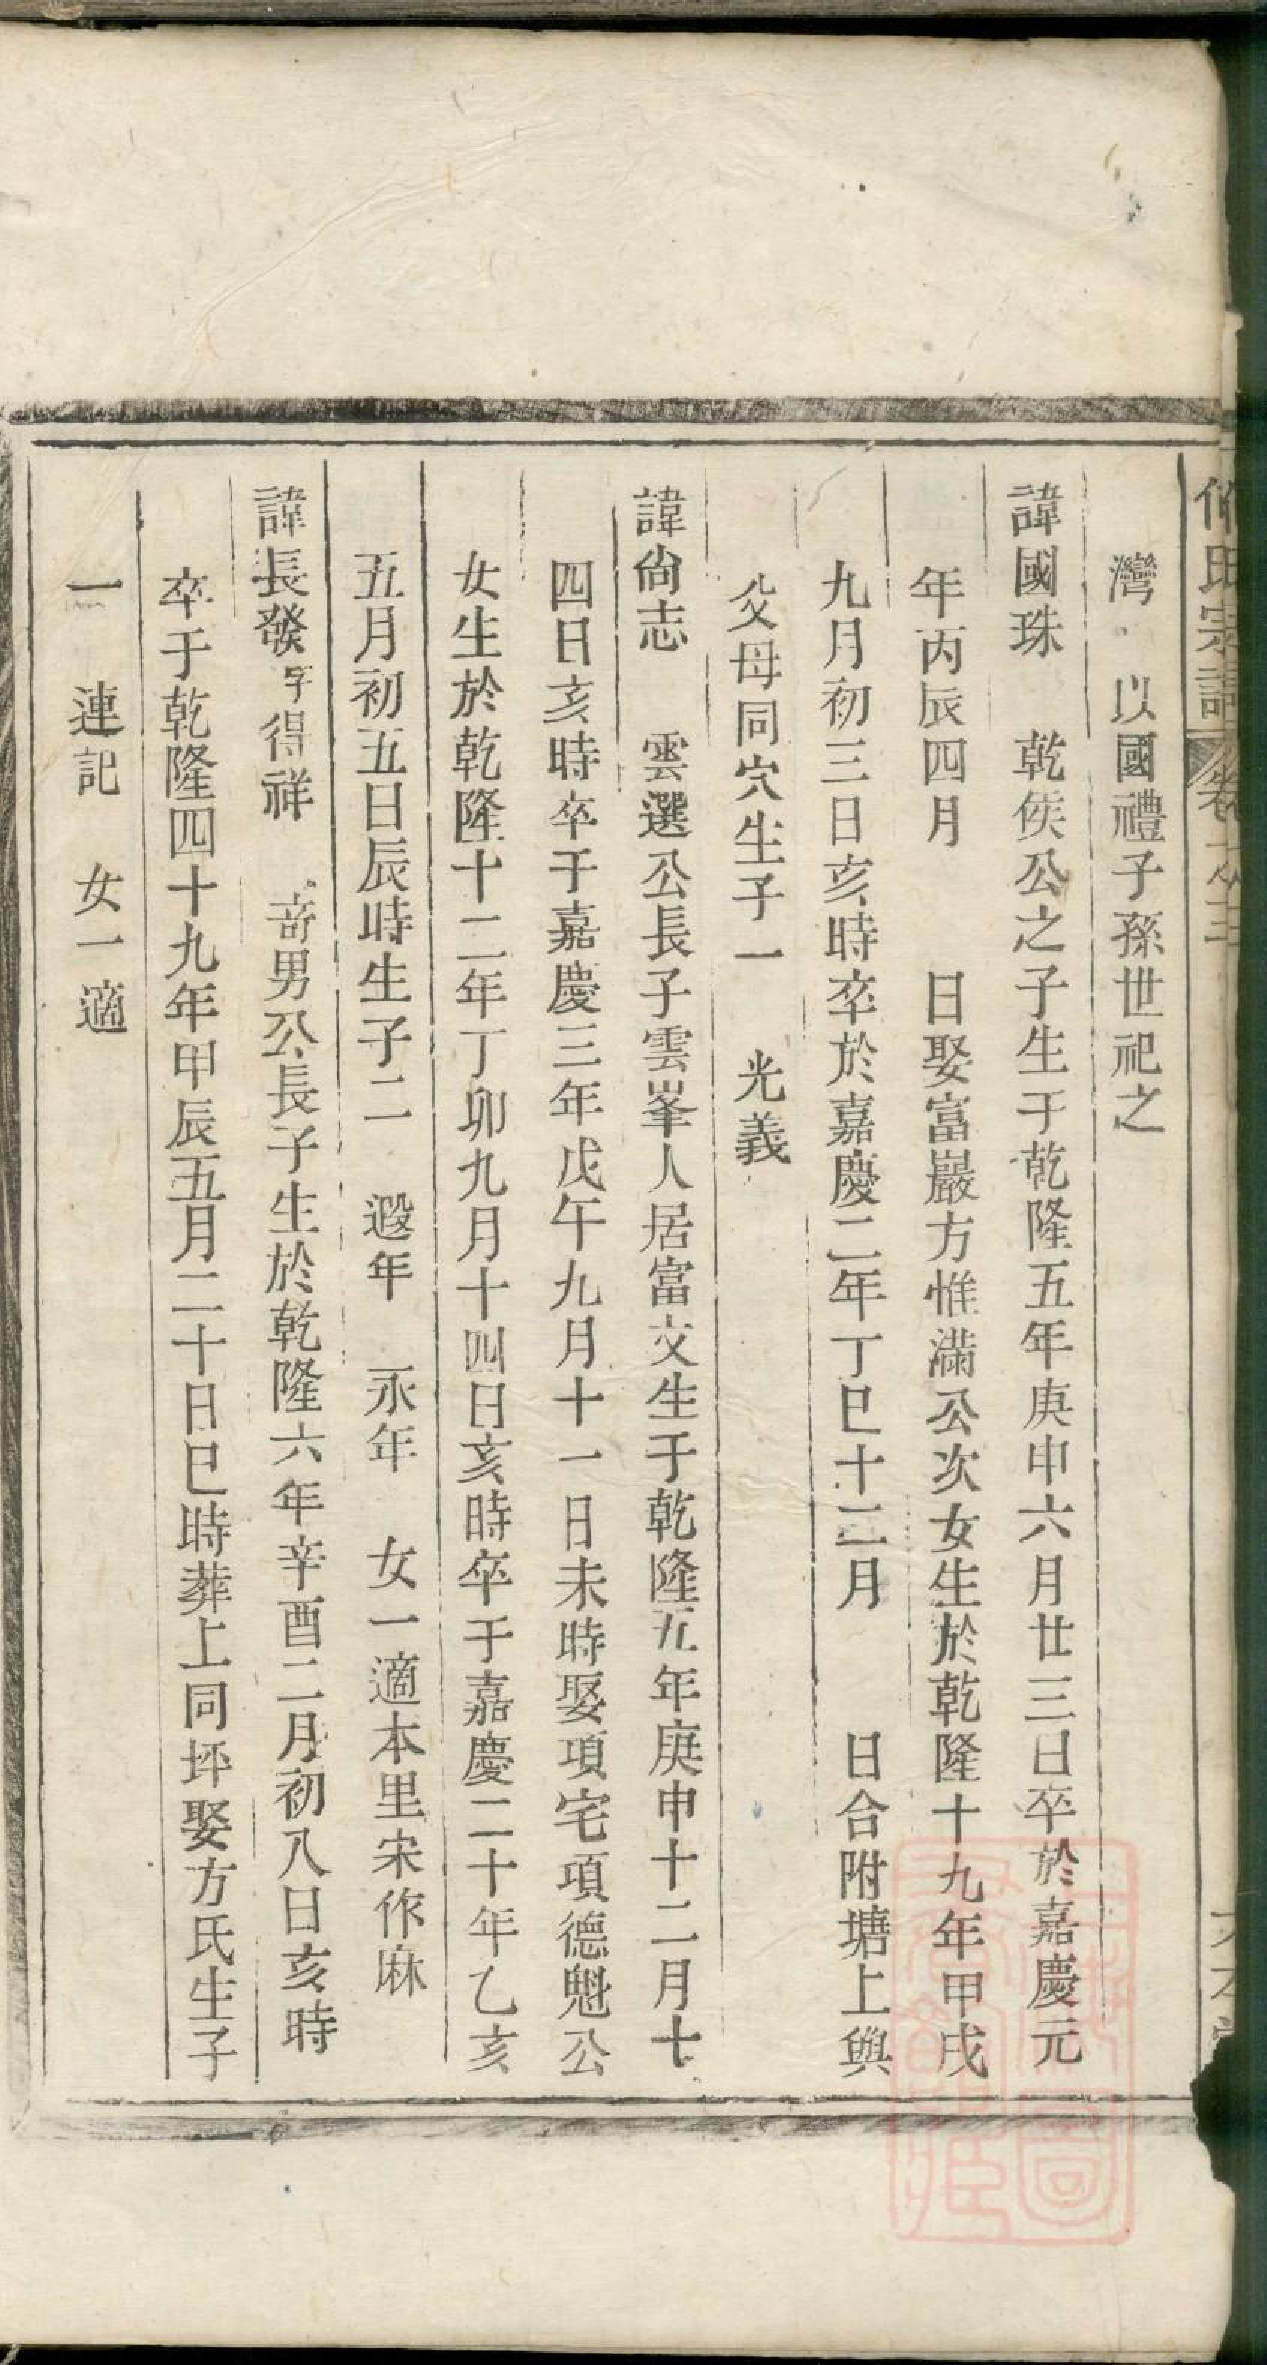 灣 以國禮子孫世祀之
諱國珠 乾侯公之子生于乾隆五年庚申六月廿三日卒於嘉慶元
年丙辰四月 日娶富巖方惟滿公次女生於乾隆十九年甲戌
九月初三日亥時卒於嘉慶二年丁巳十二月 日合附塘上與
父母同穴生子一 光義
諱尙志 雲選公長子雲峯人居富文生于乾隆五年庚申十二月十
四日亥時卒于嘉慶三年戊午九月十一日未時娶項宅項德魁公
女生於乾隆十二年丁卯九月十四日亥時卒于嘉慶二十年乙亥
五月初五日辰時生子二 遐年 永年 女一適本里宋作麻
諱長發字得祥 奇男公長子生於乾隆六年辛酉二月初八日亥時
卒于乾隆四十九年甲辰五月二十日巳時葬上同坪娶方氏生子
一 連記 女一適